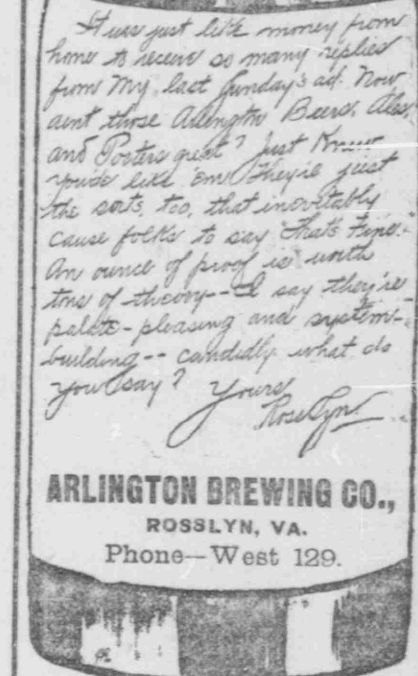 It was just like money from
home to receive so many replies
from my last Sunday's ad. Now
aint those Arlington Beers, Ales,
and Porters great? Just Knew
you'd like 'em. They're just
the sorts, too, that inevitably
cause folks to say that's fine.
An ounce of proof is worth
tons of theory--I say they're
palate-pleasing and system-
building--candidly what do
you say? Yours
Rose Lyn.
ARLINGTON BREWING CO.,
ROSSLYN, VA.
Phone—West 129.